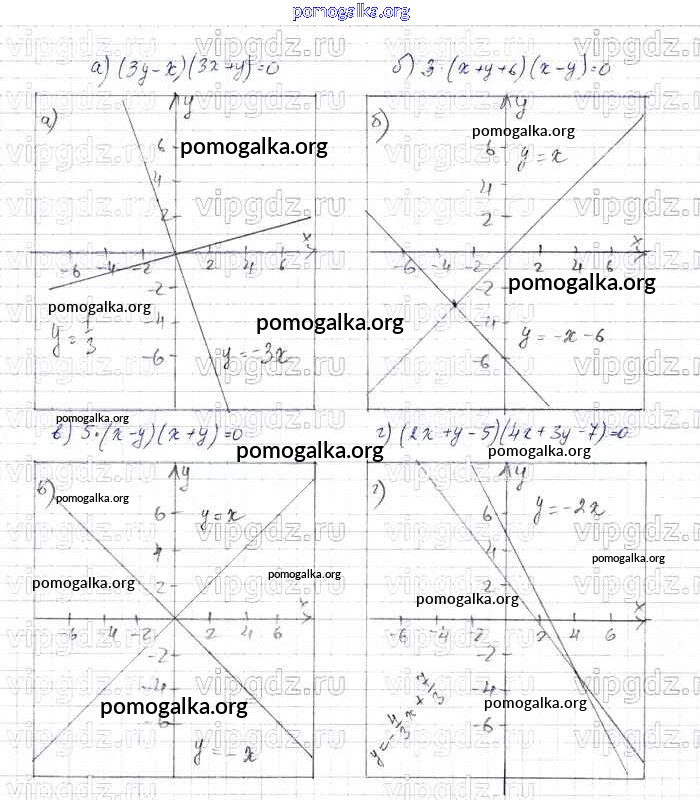 pomogalka.org
vipgdz.ru vipgdz.ru vipgdz.ru
а) (3y-x)(3x+y)=0 б) 3·(x+y+6)(x-y)=0
а) y б) y
pomogalka.org pomogalka.org
6 6 y=x
4 4
2 2
x x
-6 -4 -2 2 4 6 -6 -4 -2 2 4 6
-2 -2
pomogalka.org pomogalka.org
-4 pomogalka.org -4
y=1/3 y=-x-6
-6 y=-3x -6
pomogalka.org
в) 5·(x-y)(x+y)=0 г) (2x+y-5)(4x+3y-7)=0
pomogalka.org
в) y г) y
pomogalka.org
6 y=x 6 y=-2x
4 4
pomogalka.org pomogalka.org pomogalka.org
2 2 pomogalka.org
x x
-6 -4 -2 2 4 6 -6 -4 -2 2 4 6
-2 -2
-4 -4
pomogalka.org pomogalka.org
-6 -6
y=-x y=-4/3x+7/3